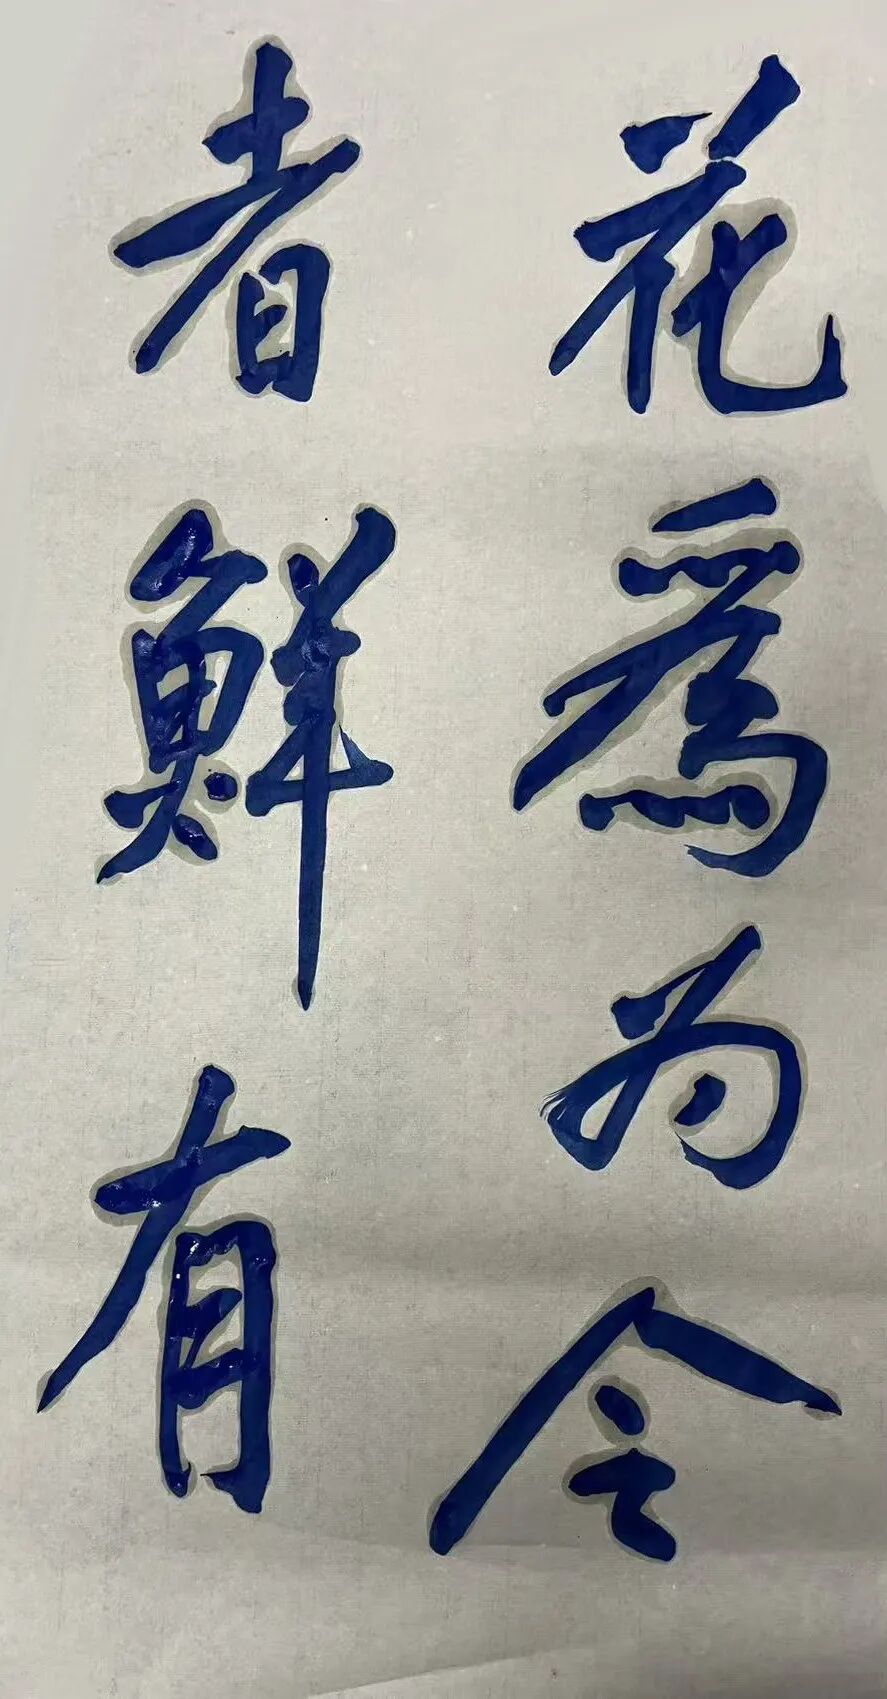 花為为令
者鮮有